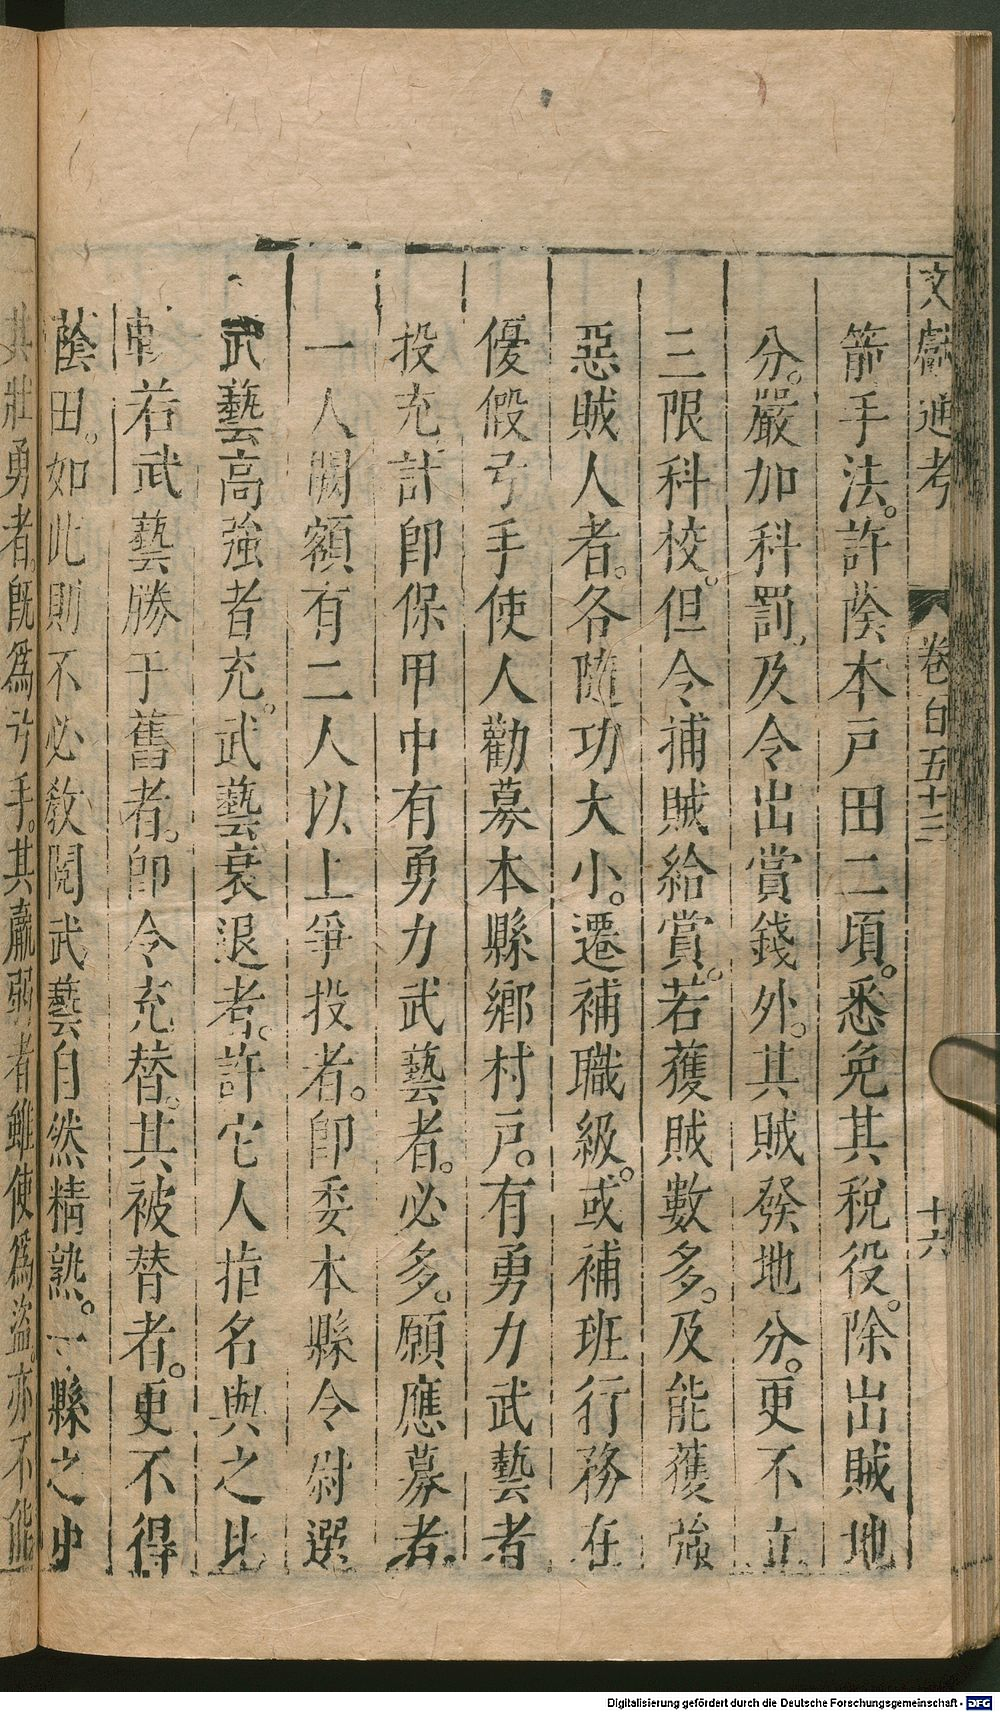 文獻通考 卷百五十三 十六
箭手法。許蔭本戶田二頃。悉免其稅役。除出賊地
分。嚴加科罰、及令出賞錢外。其賊發地分。更不立
三限科校。但令捕賊給賞。若獲賊數多。及能獲強
惡賊人者。各隨功大小。遷補職級。或補班行務在
優假弓手使人勸募本縣鄉村戶。有勇力武藝者
投充計即保甲中有勇力武藝者。必多。願應募者
一人闕額有二人以上爭投者。即委本縣令尉選
武藝高強者充。武藝衰退者。許它人指名與之比
若武藝勝于舊者。即令充替。其被替者。更不得
蔭田。如此則不必教閱武藝自然精熟。一縣之中
其壯勇者。既爲弓手。其羸弱者雖使爲盜。亦不能
Digitalisierung gefördert durch die Deutsche Forschungsgemeinschaft - DFG